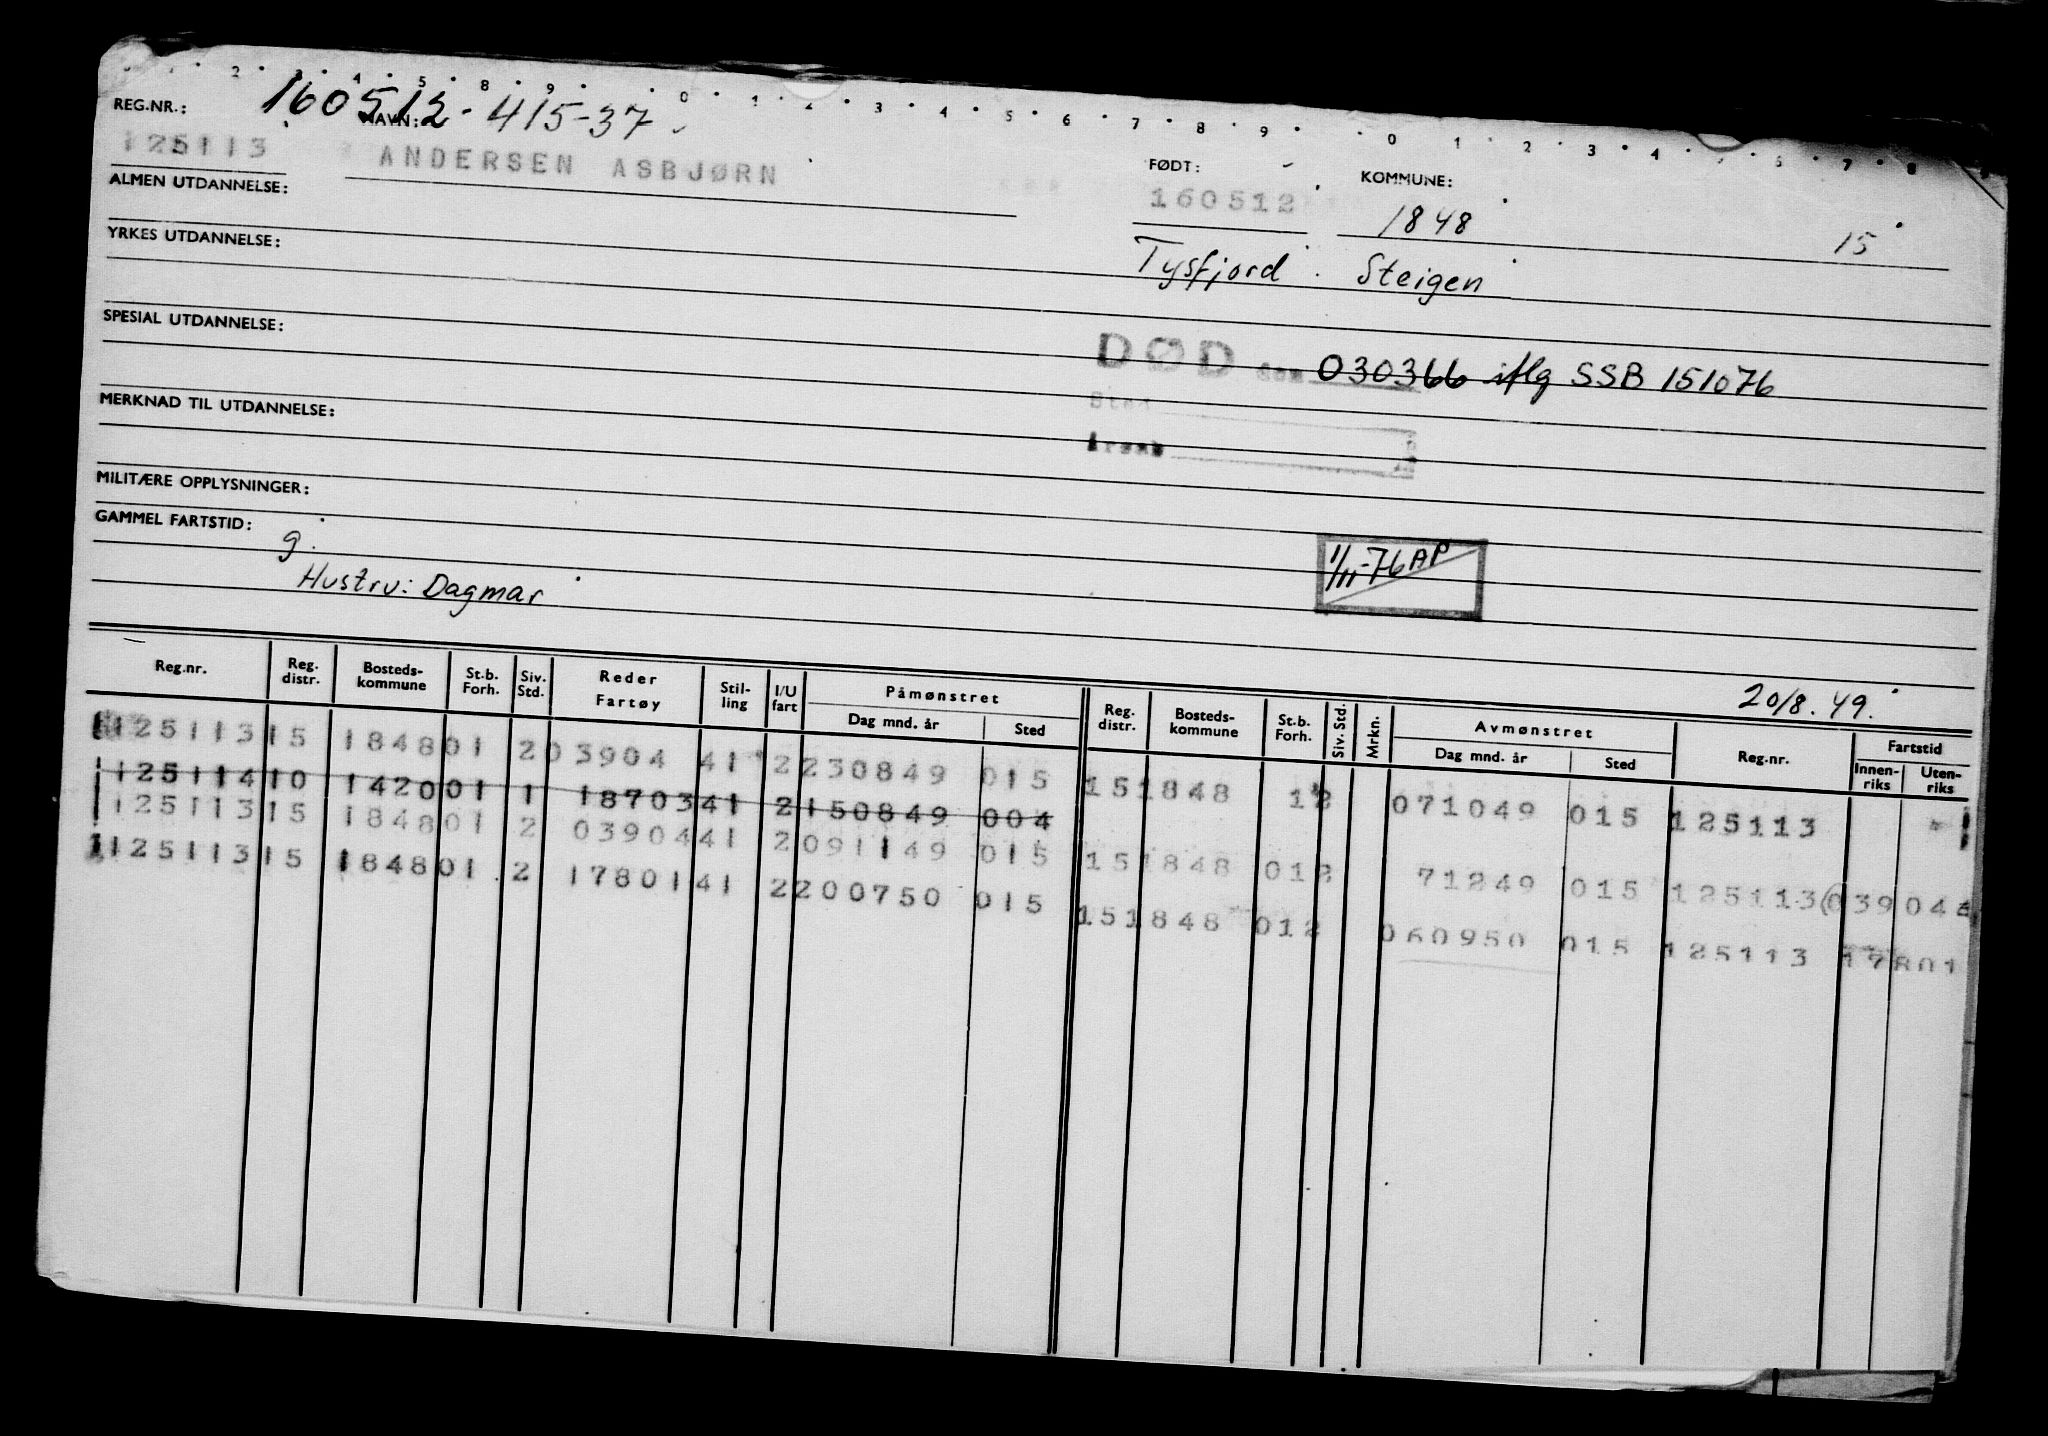 2 3 4 5 8 9 0 1 2 3 4 5 6 7 8 9 0 1 2 3 4 5 6 7 8
REG.NR.: 160512-415-37
NAVN:
125113 ANDERSEN ASBJØRN
FØDT: KOMMUNE:
160512 1848 15
ALMEN UTDANNELSE:
Tysfjord Steigen
YRKES UTDANNELSE:
SPESIAL UTDANNELSE:
DØD den 030366 iflg SSB 151076
Sted
Årsak
MERKNAD TIL UTDANNELSE:
MILITÆRE OPPLYSNINGER:
GAMMEL FARTSTID:
g.
1/11-76 AP
Hustru: Dagmar
20/8.49.
Reg.nr. Reg. distr. Bosteds-kommune St.b. Forh. Siv. Std. Reder Fartøy Stil-ling I/U fart Påmønstret Dag mnd. år Sted Reg. distr. Bosteds-kommune St.b. Forh. Siv. Std. Mrkn. Avmønstret Dag mnd. år Sted Reg.nr. Fartstid Innen-riks Uten-riks
125113 15 1848 01 2 03904 41 2 230849 015 15 1848 1 2 071049 015 125113
125114 10 1420 01 1 18703 41 2 150849 004
125113 15 1848 01 2 03904 41 2 091149 015 15 1848 01 2 71249 015 125113 (03904
125113 15 1848 01 2 17801 41 2 200750 015 15 1848 01 2 060950 015 125113 17801